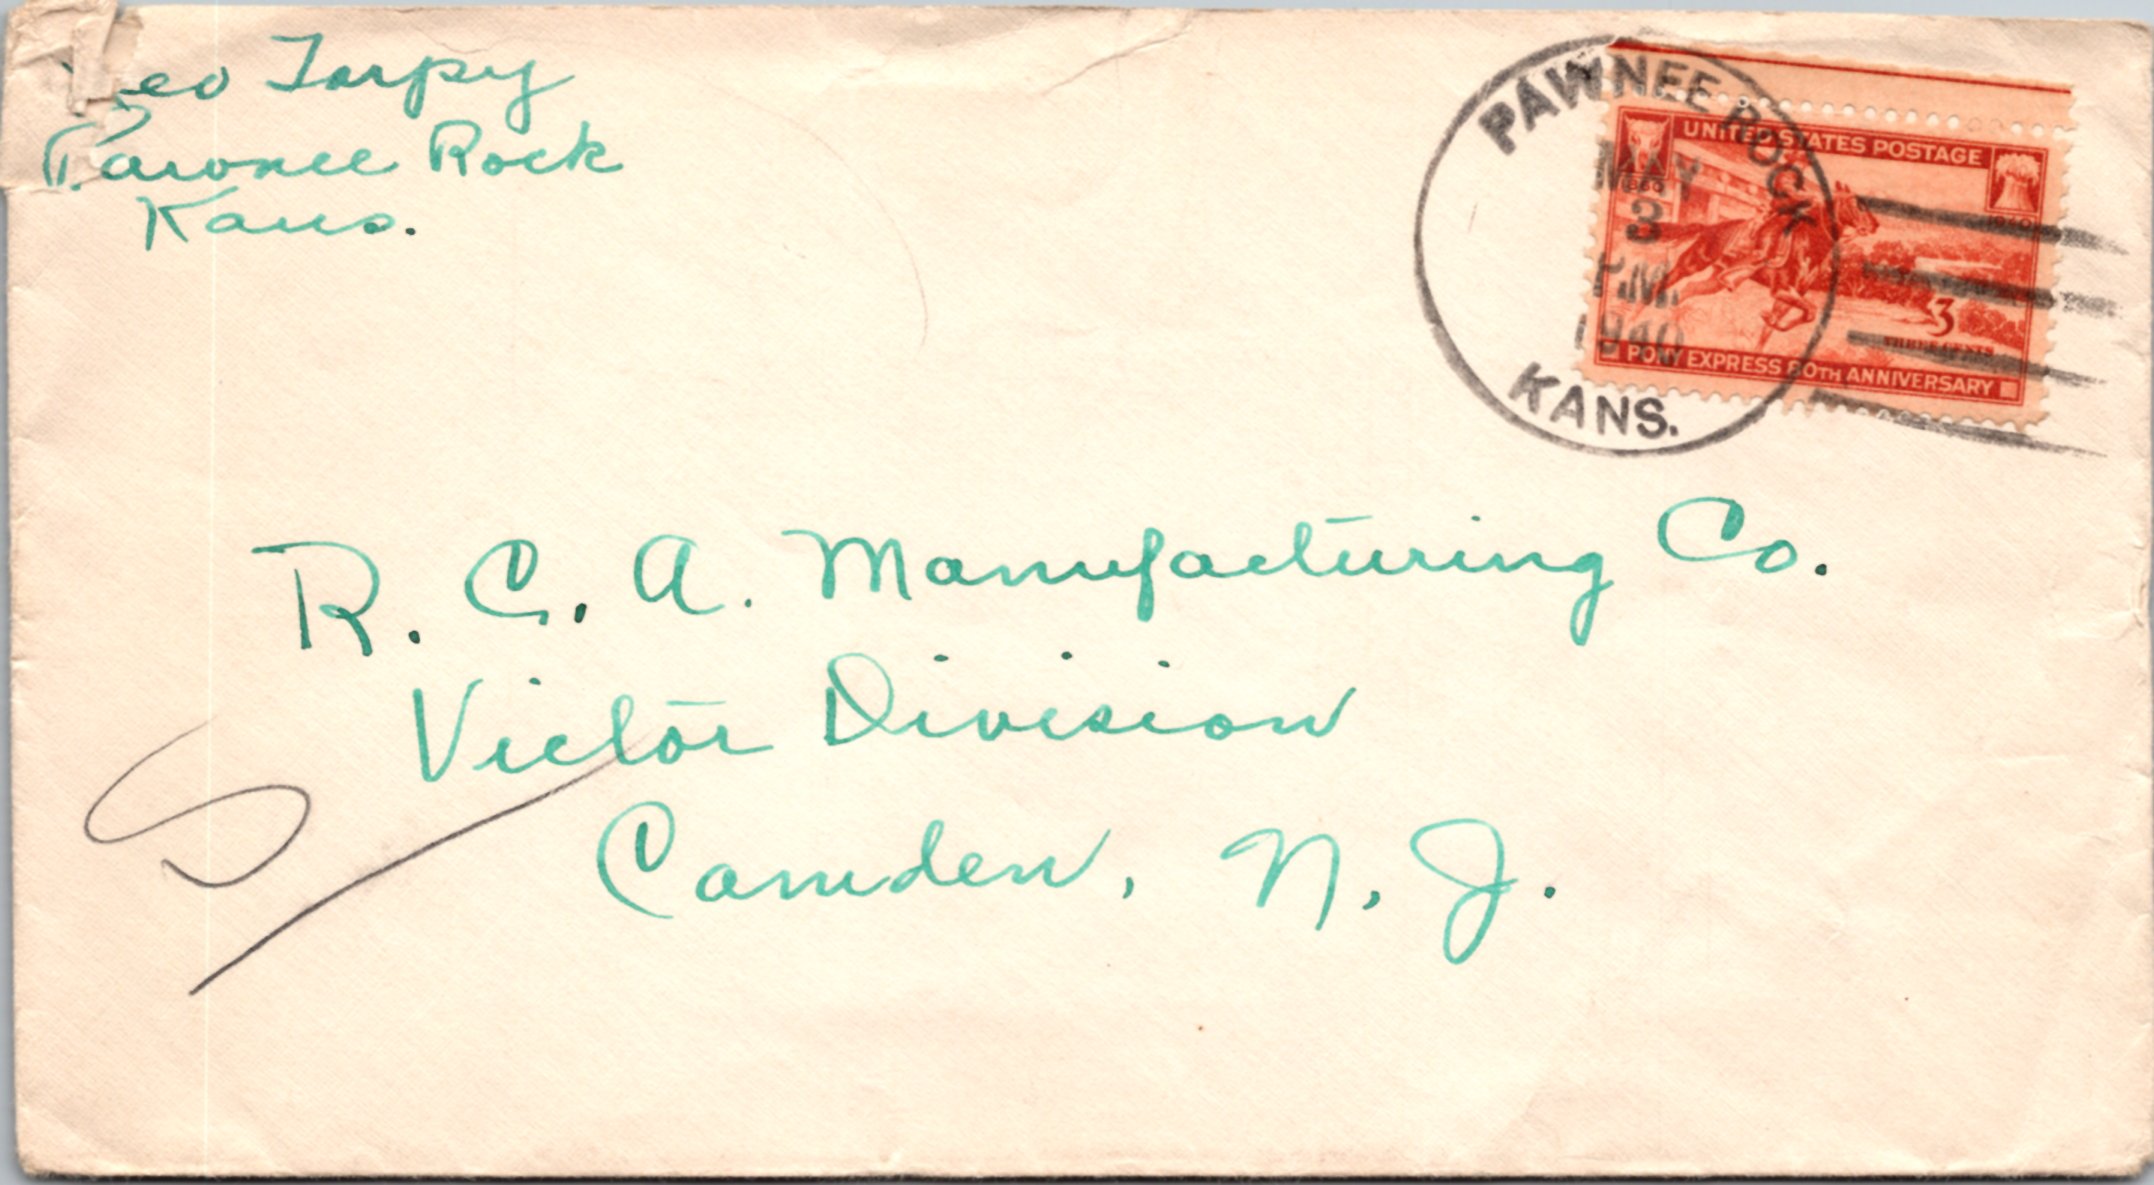 Tarpy
Pawnee Rock
Kans.
PAWNEE ROCK
MAY
3
P.M.
1940
KANS.
UNITED STATES POSTAGE
1860
1940
3
PONY EXPRESS 80TH ANNIVERSARY
R. C. A. Manufacturing Co.
Victor Division
Camden, N. J.